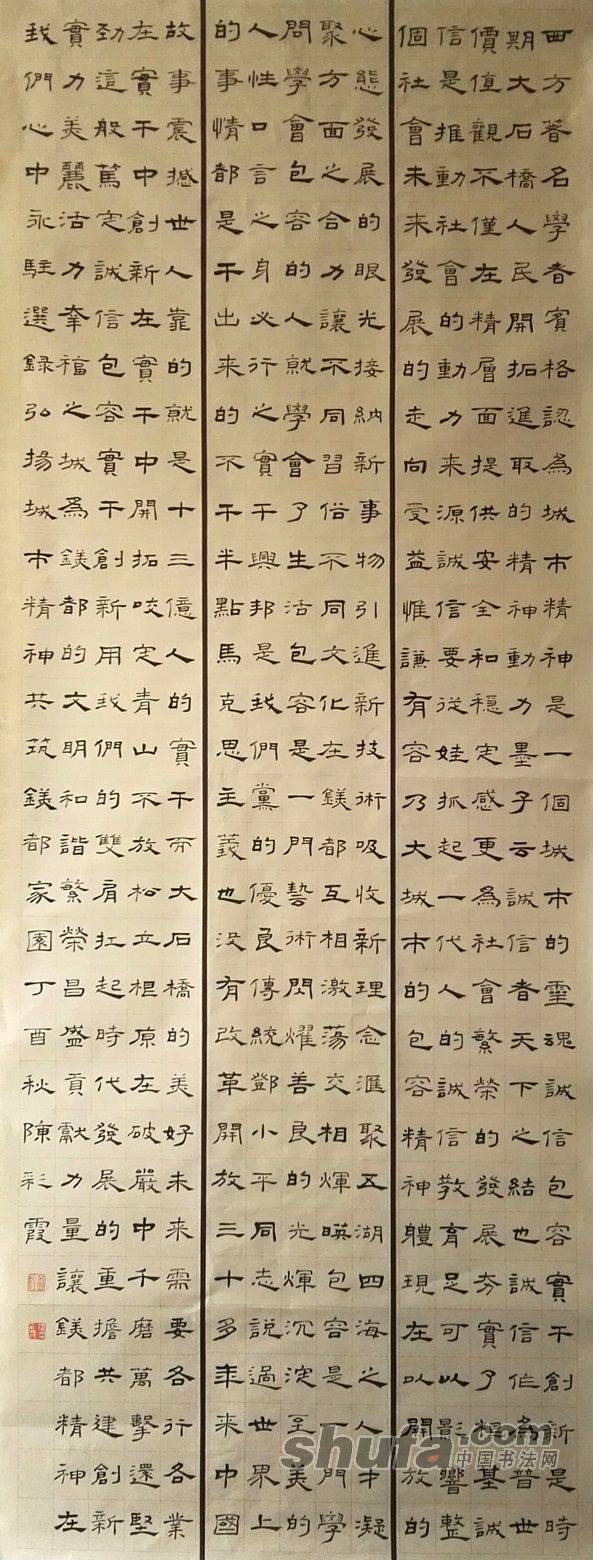 四方著名學者賓格認為城市精神是一個城市的靈魂誠信包容實干創新是時
期大石橋人民開拓進取的精神動力墨子云誠信者天下之結也誠信作為普世
價值觀不僅在精層面提供安全和穩定感更為社會繁榮的發展夯實了根基誠
信是推動社會的動力來源誠信要從娃抓起一代人的誠信教育足可以影響整
個社會未來發展的走向受益惟謙有容乃大城市的包容精神體現在以開放的
心態發展的眼光接納新事物引進新技術吸收新理念滙聚五湖四海之人才凝
聚方面之合力讓不同習俗不同文化在鎂都互相激蕩交相輝暎包容是一門學
問學會包容的人就學會了生活包容是一門藝術閃耀善良的光輝沉淀至美的
人性口言之身必行之實干興邦是我們黨的優良傳統鄧小平同志說過世界上
的事情都是干出來的不干半點馬克思主義也沒有改革開放三十多年來中國
故事震撼世人靠的就是十三億人的實干而大石橋的美好未來需要各行各業
在實干中創新在實干中開拓咬定青山不放松立根原在破嚴中千磨萬擊還堅
勁這般篤定誠信包容實干創新用我們的雙肩扛起時代發展的重擔共建創新
實力美麗活力幸福之城為鎂都的文明和諧繁榮昌盛貢獻力量讓鎂都精神在
我們心中永駐選錄弘揚城市精神共筑鎂都家園丁酉秋陳彩霞
shufa.com
中国书法网